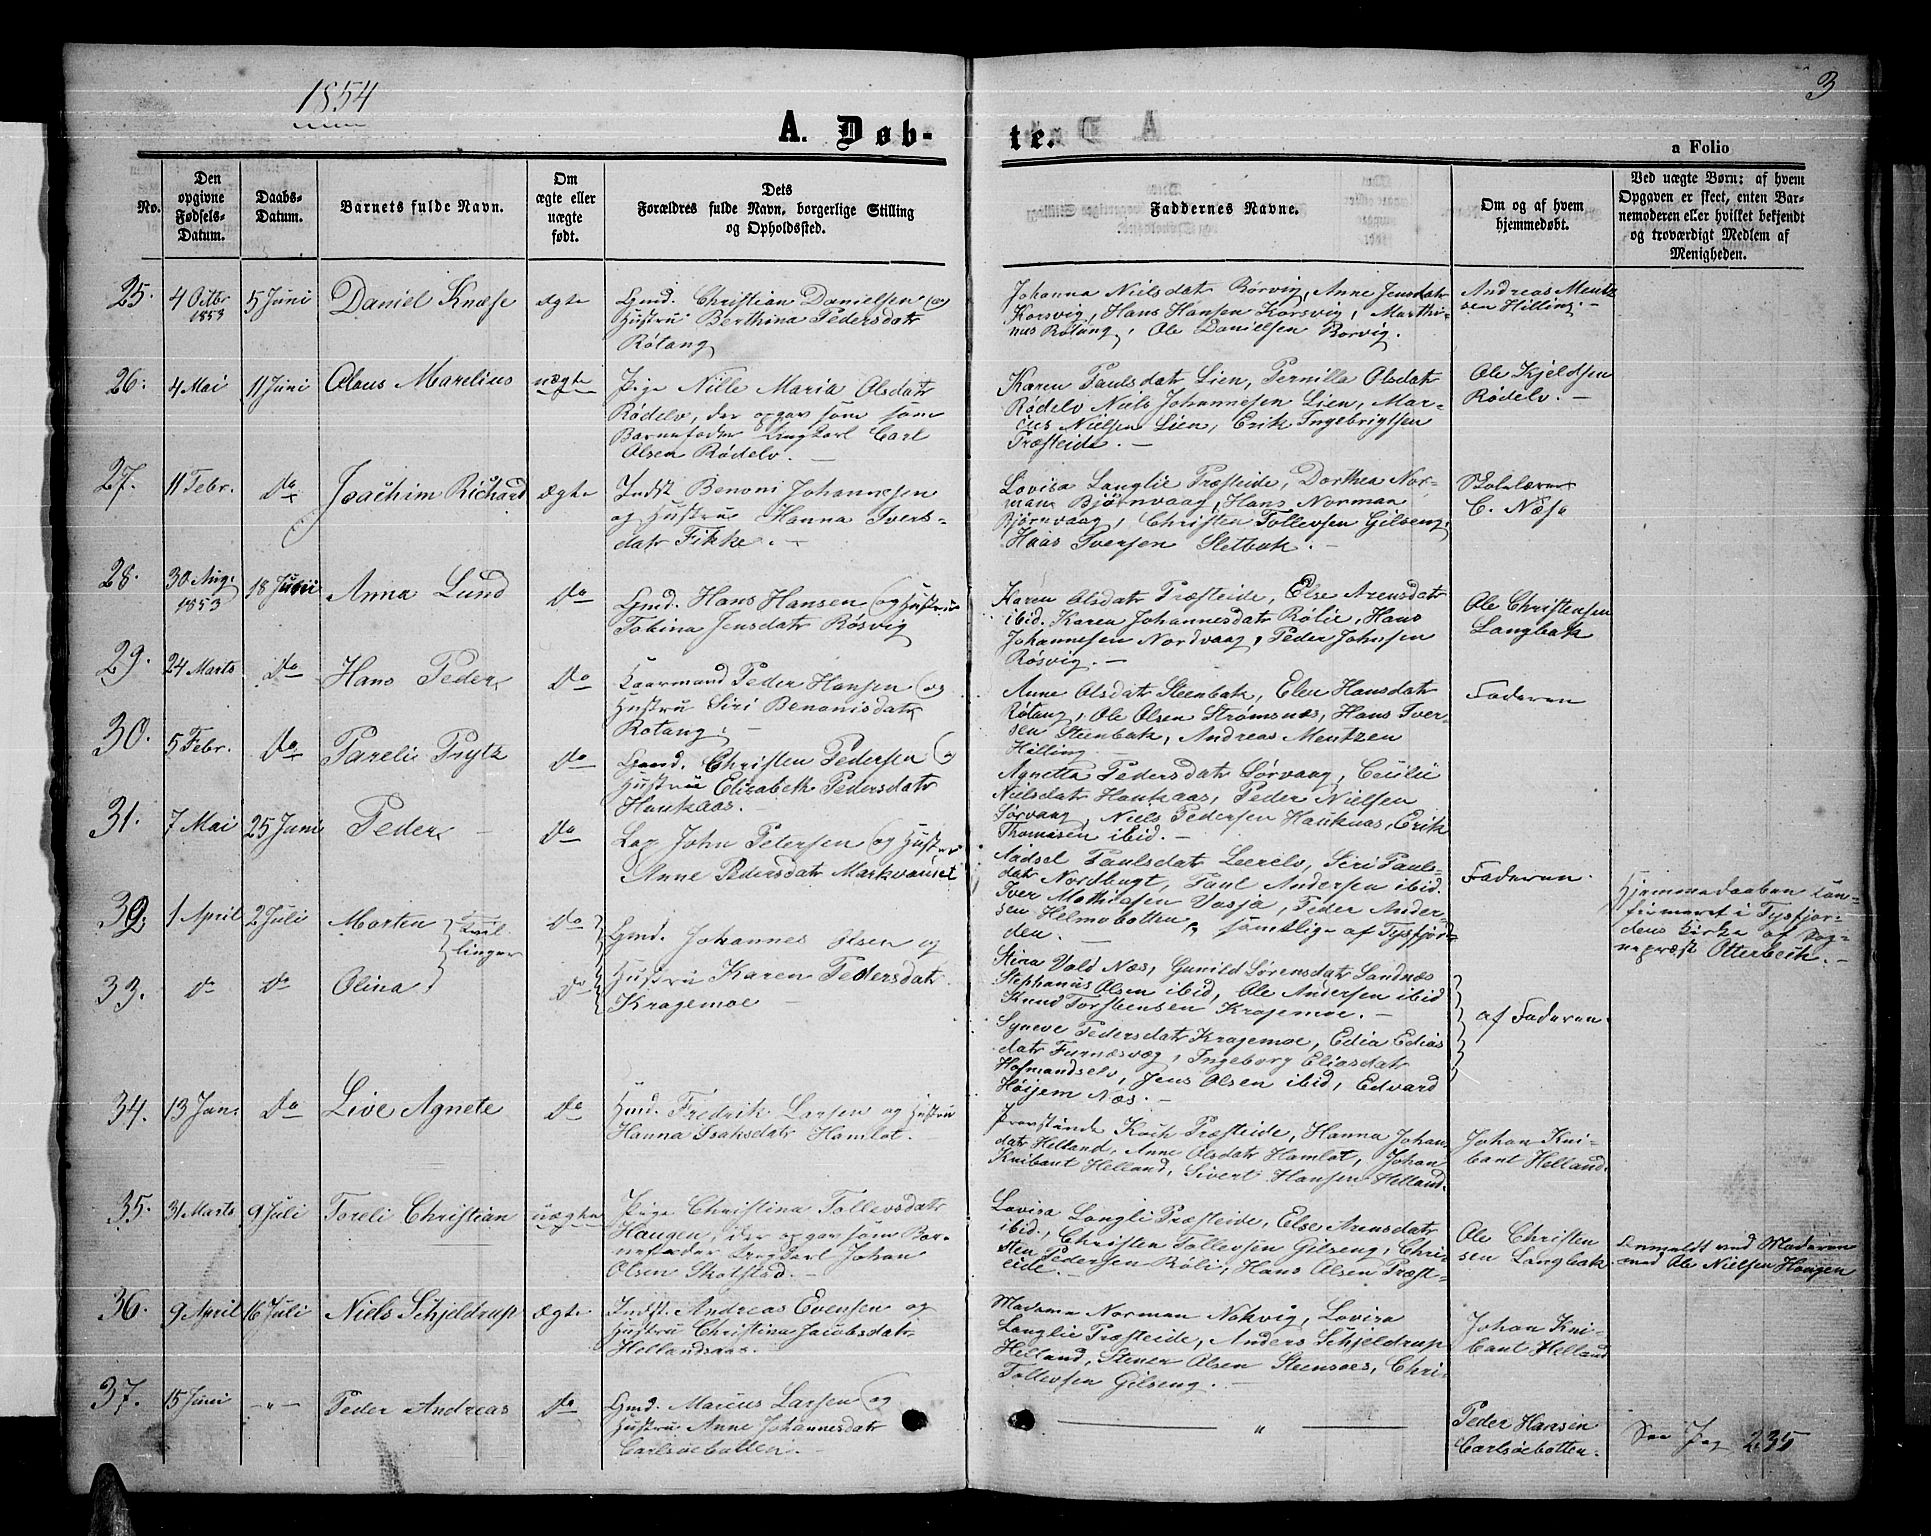 1854
3
A. Døb-
te.
a Folio
No.
Den
opgivne
Fødsels-
Datum.
Daabs-
Datum.
Barnets fulde Navn.
Om
ægte eller
uægte
født.
Dets
Forældres fulde Navn, borgerlige Stilling
og Opholdssted.
Faddernes Navne.
Om og af hvem
hjemmedøbt.
Ved uægte Børn: af hvem
Opgaven er skeet, enten Bar-
nemoderen eller hvilket bekjendt
og troværdigt Medlem af
Menigheden.
25. 4 Octbr 1853 5 Juni Daniel Knæse ægte
Gmd. Christian Danielsen og
Hustru Berthina Pedersdatr
Røtang
Johanna Nielsdatr Rörvig, Anne Jensdatr
Korsvig, Hans Hansen Korsvig, Marthi-
nus Røtang, Ole Danielsen Rorvig.
Andreas Mentz
sen Hilling.
26. 4 Mai 11 Juni Olaus Marelius uægte
Pige Nille Maria Olsdatr
Rödelv, der opgav som som
Barnefader Ungkarl Carl
Olsen Rödelv.
Karen Paulsdatr Lien, Pernilla Olsdatr
Rödelv Niels Johannesen Lien, Mar-
cus Nielsen Lien, Erik Ingebrigtsen
Præsteide.
Ole Kjeldsen
Rödelv.
27. 11 Febr. do Joachim Richard ægte
Indst Benoni Johannesen
og Hustru Hanna Ivers-
datr Fikke.
Lovisa Langlie Præsteide, Dorthea Nor-
man Bjørnvaag, Hans Norman
Bjørnvaag, Christen Tollevsen Gilseng,
Haas Iversen Sletbak.
Skolelærer
C. Næse
28. 30 Aug. 1853 18 Juni Anna Lund do
Gmd. Hans Hansen og Hustru
Tobina Jensdatr Røsvig
Karen Olsdatr Præsteide, Else Arensdatr
ibid. Karen Johannesdatr Rølie, Hans
Johannesen Nordvaag, Peder Johnsen
Røsvig.
Ole Christensen
Langbak
29. 24 Marts do Hans Peder do
Kaarmand Peder Hansen og
Hustru Siri Benonisdatr
Rotang.
Anne Olsdatr Steenbak, Elen Hansdatr
Røtang, Ole Olsen Strømsnæs, Hans Iver-
sen Steenbak, Andreas Mentzen
Hilling.
Faderen
30. 5 Febr. do Pareli Prytz do
Gmd. Christen Pedersen o
Hustrue Elisabeth Pedersdatr
Haukaas.
Agnetta Pedersdatr Sørvaag, Cecilie
Nielsdatr Haukaas, Peder Nielsen
Sørvaag, Niels Pedersen Haukaas, Erik
Thomasen ibid.
31. 7 Mai 25 Juni Peder do
Lap John Petersen og Hustru
Anne Pedersdatr Markvasset
Aadsel Paulsdatr Leerelv, Siri Pauls-
datr Nordbugt, Paul Andersen ibid.
Iver Mathiasen Vasja, Peder Ander-
sen Helmobotten, samtlige af Tysfjor-
den.
Faderen.
Hjemmedaaben con-
firmeret i Tysfjor-
dens Kirke af Sog-
nepræst Otterbech.
32. 1 April 2 Juli Morten Tvil-
lingar do
33. do do Olina do
Gmd. Johannes Olsen og
Hustru Karen Pedersdatr
Kragemoe
Stina Vold Næs, Gunild Sørensdatr Sandnæs
Stephanus Olsen ibid, Ole Andersen ibid
Knud Torstensen Kragemoe.
Syneve Pedersdatr Kragemoe, Edia Edias
datr Furnæsvæg, Ingeborg Eliasdatr
Hofmandselv, Jens Olsen ibid, Edvard
Höijem Næs.
af Faderen.
34. 13 Jan. do Live Agnete do
Hmd. Fredrik Larsen og Hustru
Hanna Isaksdatr Hamlot.
Provstinde Koch Præsteide, Hanna Johan
datr Helland, Anne Olsdatr Hamlot, Johan
Knibant Helland, Sivert Hansen Helland.
Johan Kni-
bant Helland.
35. 31 Marts 9 Juli Toreli Christian uægte
Pige Christina Tollevsdatr
Haugen, der opgav som Bar-
nefader Ungkarl Johan
Olsen Skotstad.
Lovisa Langli Præsteide, Else Arensdatr
ibid., Christen Tollevsen Gilseng, Chri-
sten Pedersen Röli, Hans Olsen Præst-
eide.
Ole Christen
sen Langbak
Anmeldt ved Moderen
med Ole Nielsen Haugen
36. 9 April 16 Juli Niels Schjeldrup ægte
Indst. Andreas Evensen og
Hustru Christina Jacobsdatr
Hellandsaas.
Madame Norman Nokvig, Lovisa
Langlie Præsteide, Anders Schjeldrup
Helland, Stener Olsen Steensaas, Chri
Tollevsen Gilseng.
Johan Kni-
bant Helland
37. 15 Juni -"- Peder Andreas do
Gmd. Marcus Larsen og
Hustru Anne Johannesdatr
Carlsøebotten.
"
Peder Hansen
Carlsøebotten.
See Pag 235